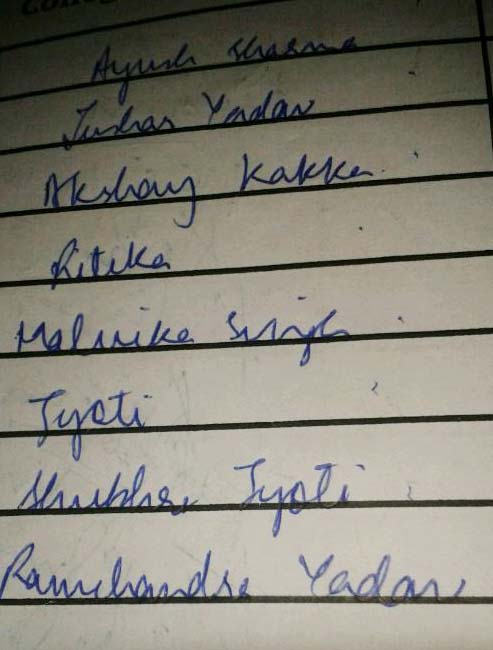 Ayush Sharma
Tushar Yadav
Akshay Kakkar
Ritika
Malvika Singh
Jyoti
Shubhra Jyoti
Ramchandra Yadav